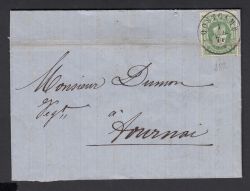 Monsieur Dumon
Négt
à
Tournai